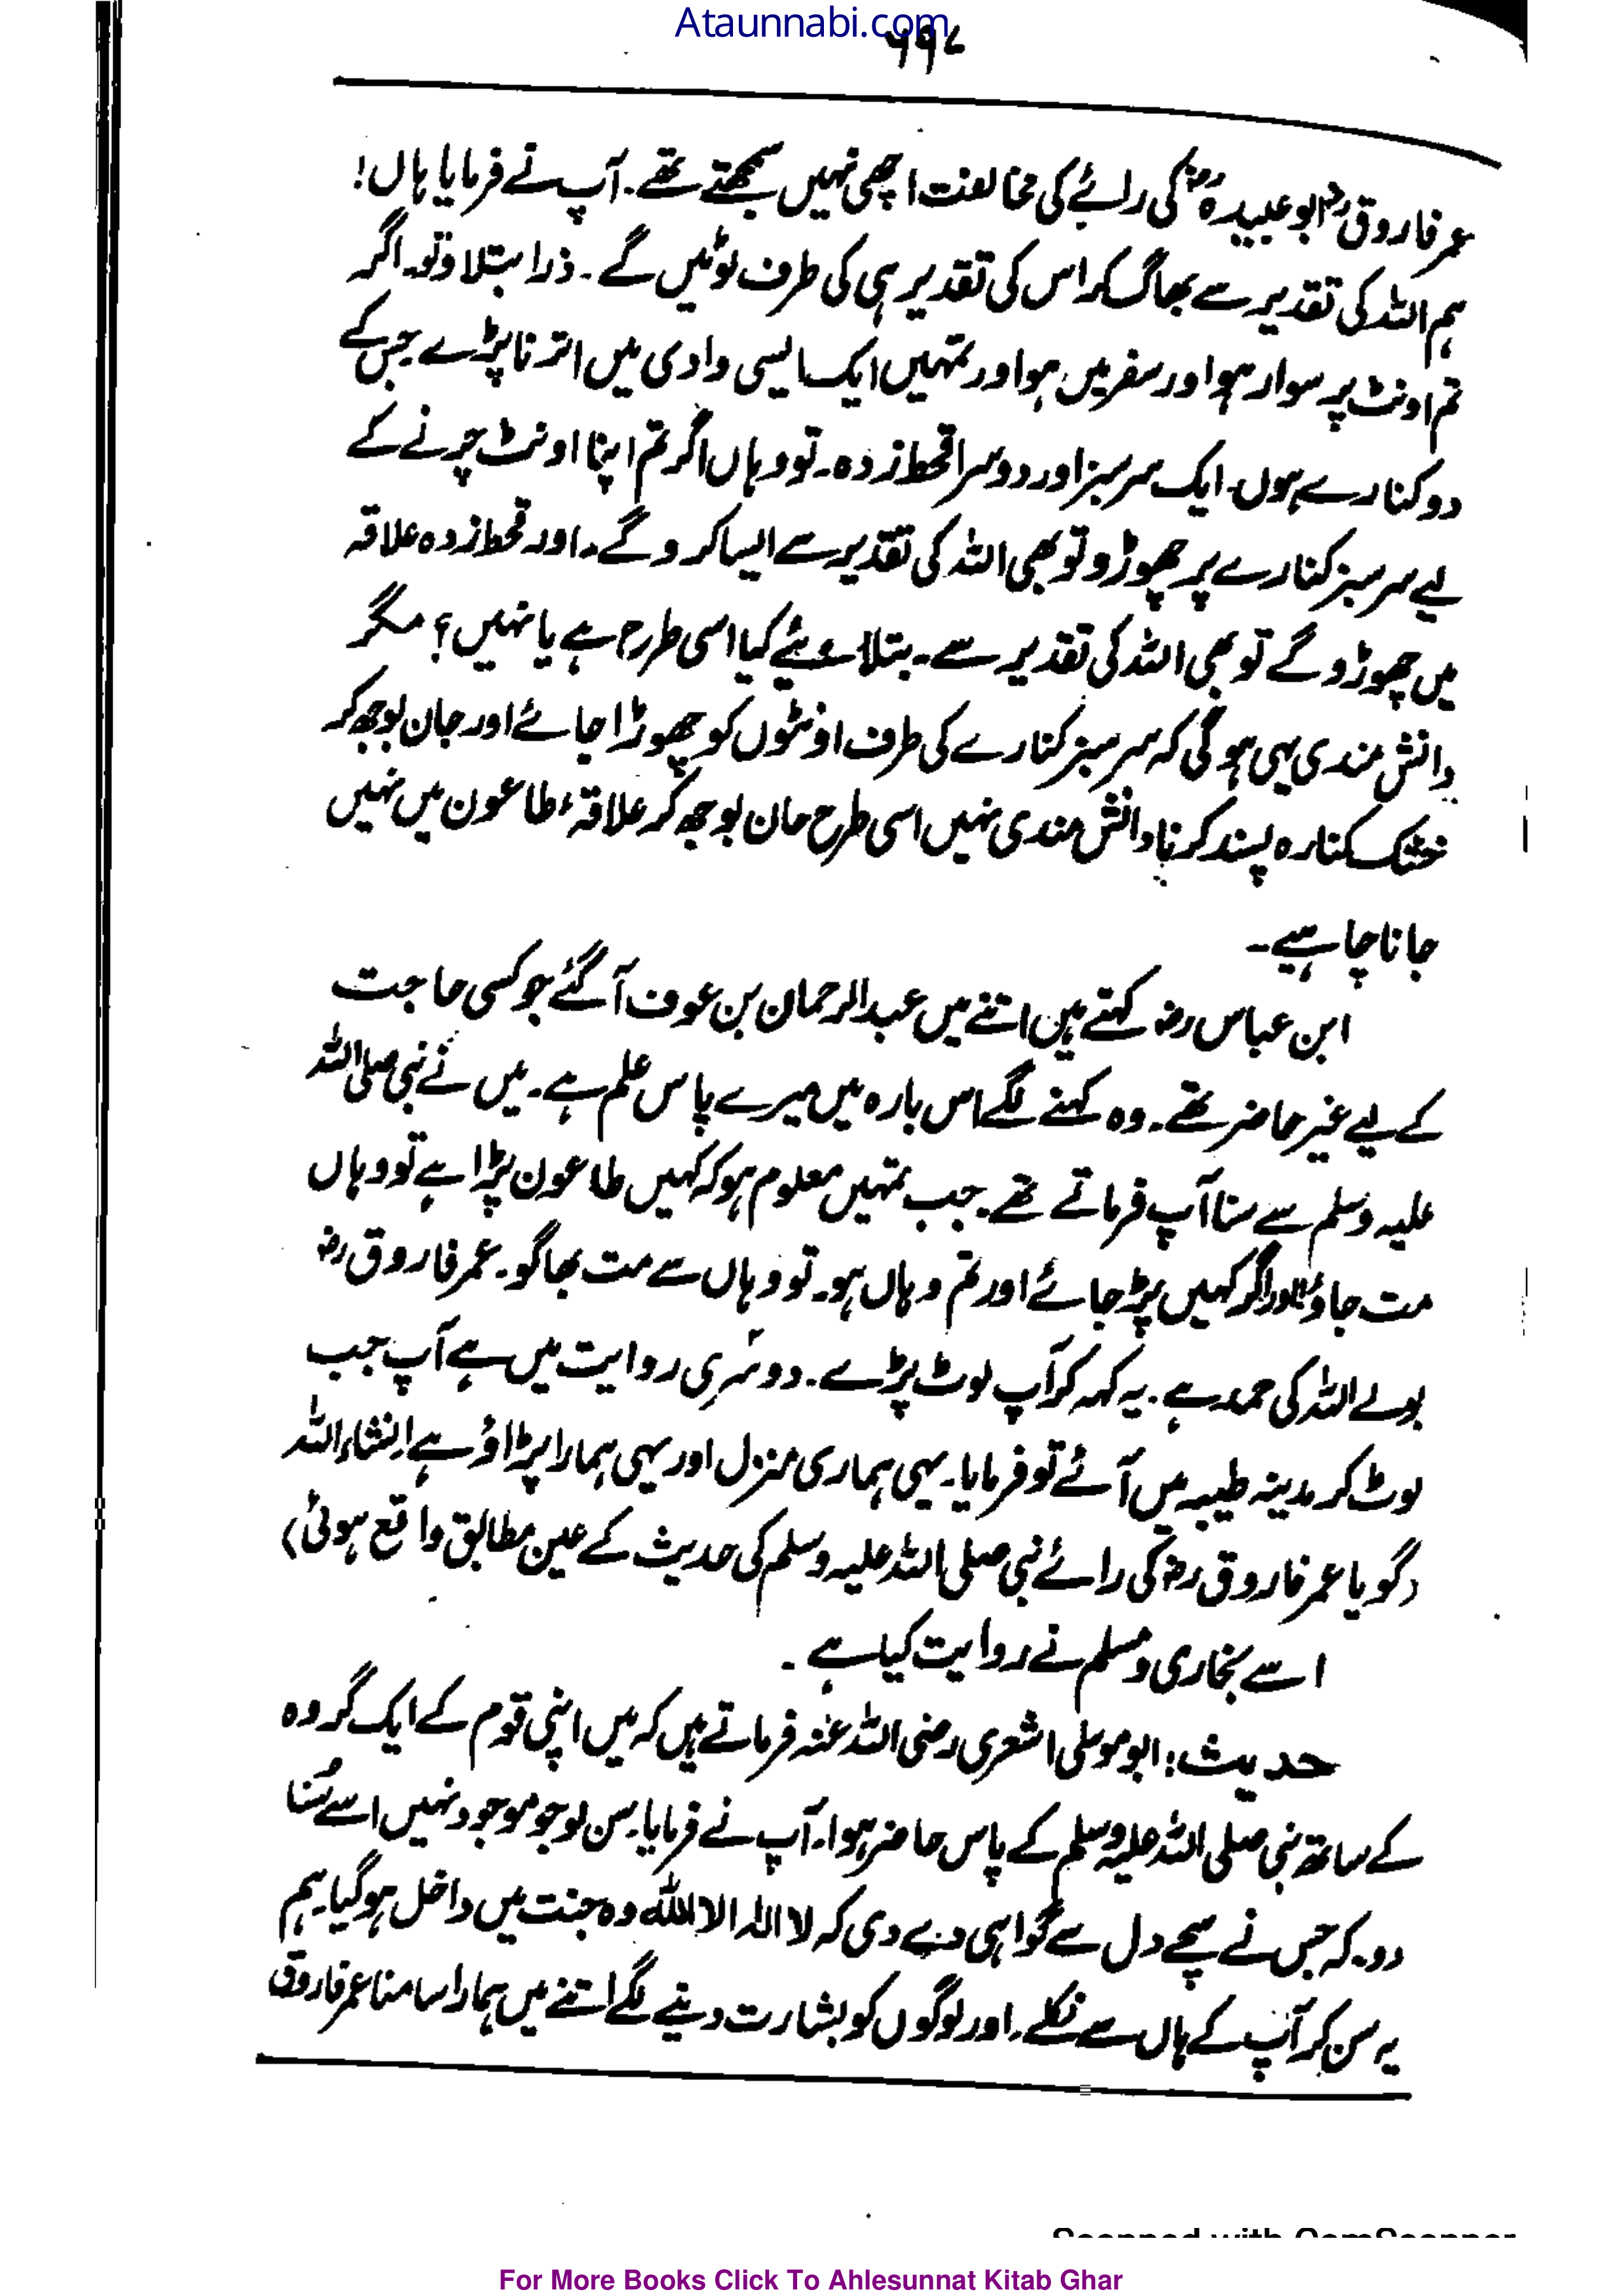 Ataunnabi.com
۶۹۷
عمر فاروق رض ابو عبیدہ رض کی رائے کی مخالفت اچھی نہیں سمجھتے تھے۔ آپ نے فرمایا ہاں!
ہم اللہ کی تقدیر سے بھاگ کر اس کی تقدیر ہی کی طرف لوٹیں گے۔ ذرا بتلاؤ تو۔ اگر
تم اونٹ پر سوار ہو اور سفر میں ہو اور تمہیں ایک ایسی وادی میں اترنا پڑے جس کے
دو کنارے ہوں۔ ایک سرسبز اور دوسرا قحط زدہ۔ تو وہاں اگر تم اپنا اونٹ چرنے کے
لیے سرسبز کنارے پر چھوڑو تو بھی اللہ کی تقدیر سے ایسا کرو گے۔ اور قحط زدہ علاقہ
میں چھوڑو گے تو بھی اللہ کی تقدیر سے۔ بتلائیے کیا اسی طرح ہے یا نہیں؟ مگر
دانش مندی یہی ہو گی کہ سرسبز کنارے کی طرف اونٹوں کو چھوڑا جائے اور جان بوجھ کر
خشک کنارہ پسند کرنا دانش مندی نہیں اسی طرح جان بوجھ کر علاقۂ طاعون میں نہیں
جانا چاہیے۔
ابن عباس رض کہتے ہیں اتنے میں عبدالرحمان بن عوف آ گئے جو کسی حاجت
کے لیے غیر حاضر تھے۔ وہ کہنے لگے اس بارہ میں میرے پاس علم ہے۔ میں نے نبی صلی اللہ
علیہ وسلم سے سنا آپ فرماتے تھے۔ جب تمہیں معلوم ہو کہ کہیں طاعون پڑا ہے تو وہاں
مت جاؤ اور اگر کہیں پڑ جائے اور تم وہاں ہو۔ تو وہاں سے مت بھاگو۔ عمر فاروق رض
بولے اللہ کی حمد ہے۔ یہ کہہ کر آپ لوٹ پڑے۔ دوسری روایت میں ہے آپ جب
لوٹ کر مدینہ طیبہ میں آئے تو فرمایا۔ یہی ہماری منزل اور یہی ہمارا پڑاؤ ہے انشاء اللہ
(گویا عمر فاروق رض کی رائے نبی صلی اللہ علیہ وسلم کی حدیث کے عین مطابق واقع ہوئی)
اسے بخاری و مسلم نے روایت کیا ہے۔
حدیث: ابو موسٰی اشعری رضی اللہ عنہ فرماتے ہیں کہ میں اپنی قوم کے ایک گروہ
کے ساتھ نبی صلی اللہ علیہ وسلم کے پاس حاضر ہوا۔ آپ نے فرمایا۔ سن لو جو موجود نہیں اسے سُنا
دو۔ کہ جس نے سچے دل سے گواہی دے دی کہ لا الہ الا اللہ وہ جنت میں داخل ہو گیا۔ ہم
یہ سن کر آپ کے ہاں سے نکلے۔ اور لوگوں کو بشارت دینے لگے اتنے میں ہمارا سامنا عمر فاروق
Scanned with CamScanner
For More Books Click To Ahlesunnat Kitab Ghar